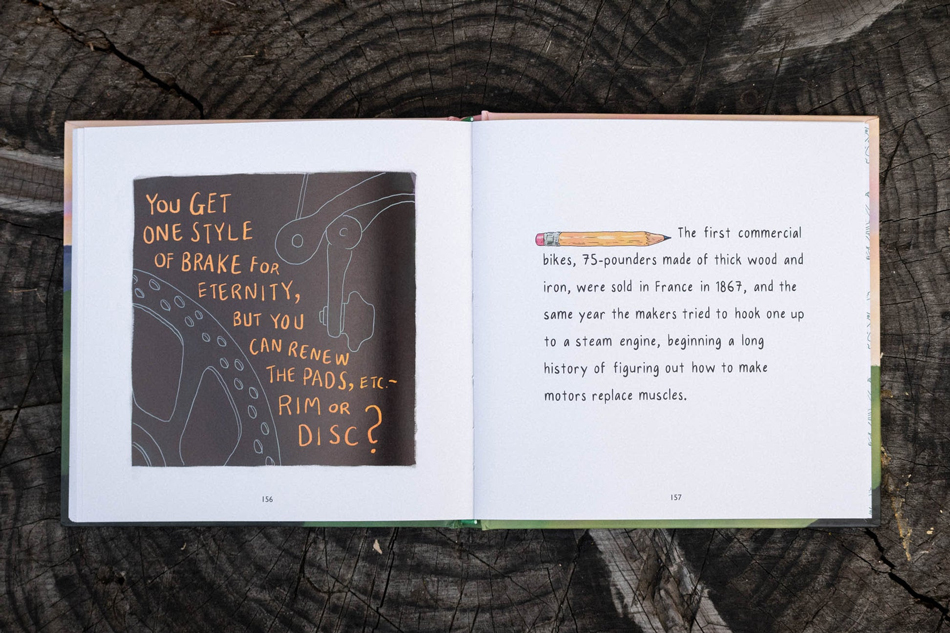 YOU GET
ONE STYLE
OF BRAKE FOR
ETERNITY,
BUT YOU
CAN RENEW
THE PADS, ETC.–
RIM OR
DISC?
156
The first commercial
bikes, 75-pounders made of thick wood and
iron, were sold in France in 1867, and the
same year the makers tried to hook one up
to a steam engine, beginning a long
history of figuring out how to make
motors replace muscles.
157